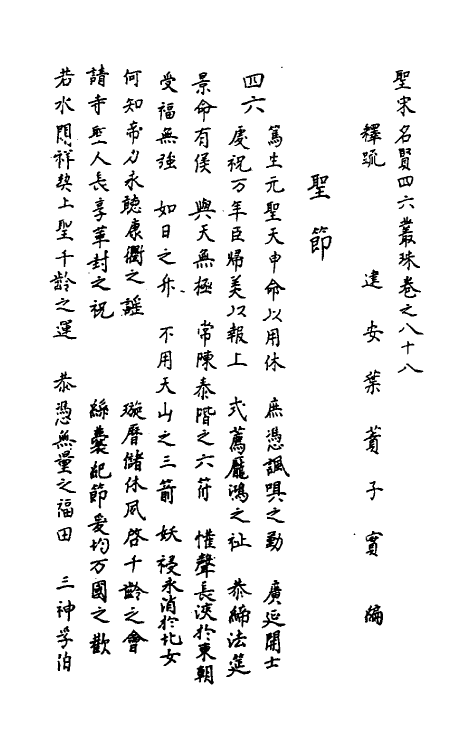 聖宋名賢四六叢珠卷之八十八
釋疏 建安葉蕡子實編
聖節
四六 篤生元聖天申命以用休 庶憑諷唄之勤 廣延開士
慶祝万年臣歸美以報上 式薦龐鴻之祉 恭締法筵
景命有僕 與天無極 常陳泰階之六符 懽聲長浹於東朝
受福無疆 如日之升 不用天山之三箭 妖祲永消於北女
何知帝力永聽康衢之謡 璇曆儲休夙啓千齡之會
請寺聖人長享華封之祝 絲囊紀節爰均万國之歡
若水開祥契上聖千齡之運 恭憑無量之福田 三神孚泊